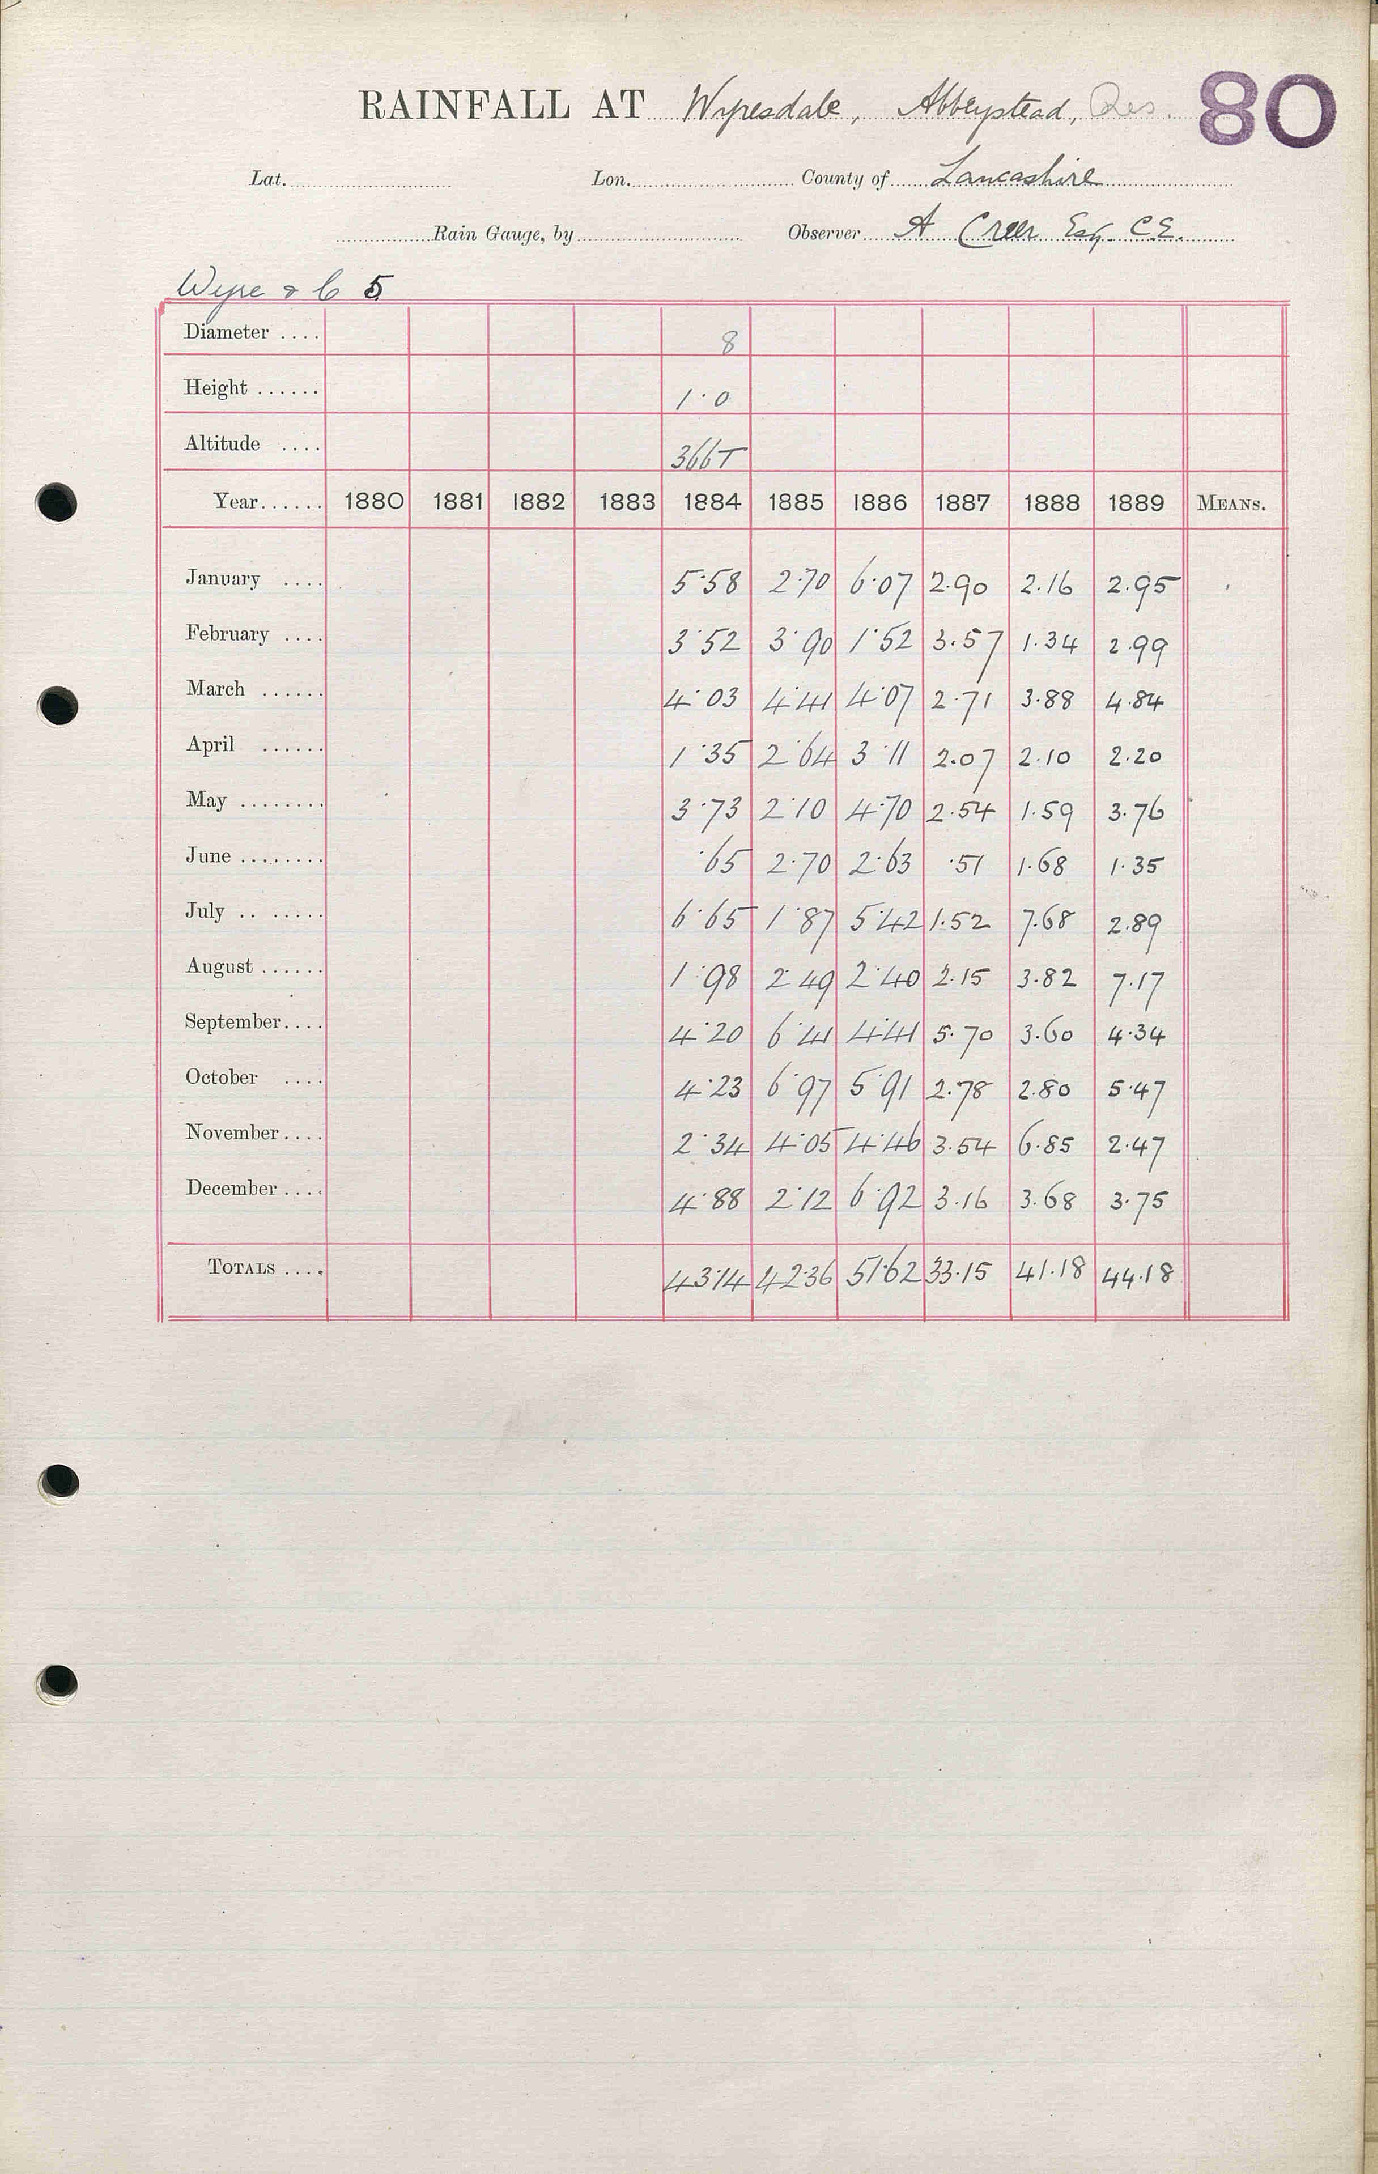 RAINFALL AT Wyresdale, Abbeystead, Res. 80
Lat. Lon. County of Lancashire
Rain Gauge, by Observer A Creer Esq. C.E.
Wyre & C 5
Diameter .... 8
Height ...... 1·0
Altitude .... 366T
Year...... 1880 1881 1882 1883 1884 1885 1886 1887 1888 1889 MEANS.
January .... 5·58 2·70 6·07 2.90 2.16 2.95
February .... 3·52 3·90 1·52 3.57 1.34 2.99
March ...... 4·03 4·41 4·07 2.71 3.88 4.84
April ...... 1·35 2·64 3·11 2.07 2.10 2.20
May ........ 3·73 2·10 4·70 2.54 1.59 3.76
June ........ ·65 2·70 2·63 ·51 1.68 1.35
July .. ..... 6·65 1·87 5·42 1.52 7.68 2.89
August ...... 1·98 2·49 2·40 2.15 3.82 7.17
September.... 4·20 6·41 4·41 5.70 3.60 4.34
October .... 4·23 6·97 5·91 2.78 2.80 5.47
November.... 2·34 4·05 4·46 3.54 6.85 2.47
December .... 4·88 2·12 6·92 3.16 3.68 3.75
TOTALS .... 43·14 42·36 51·62 33.15 41.18 44.18